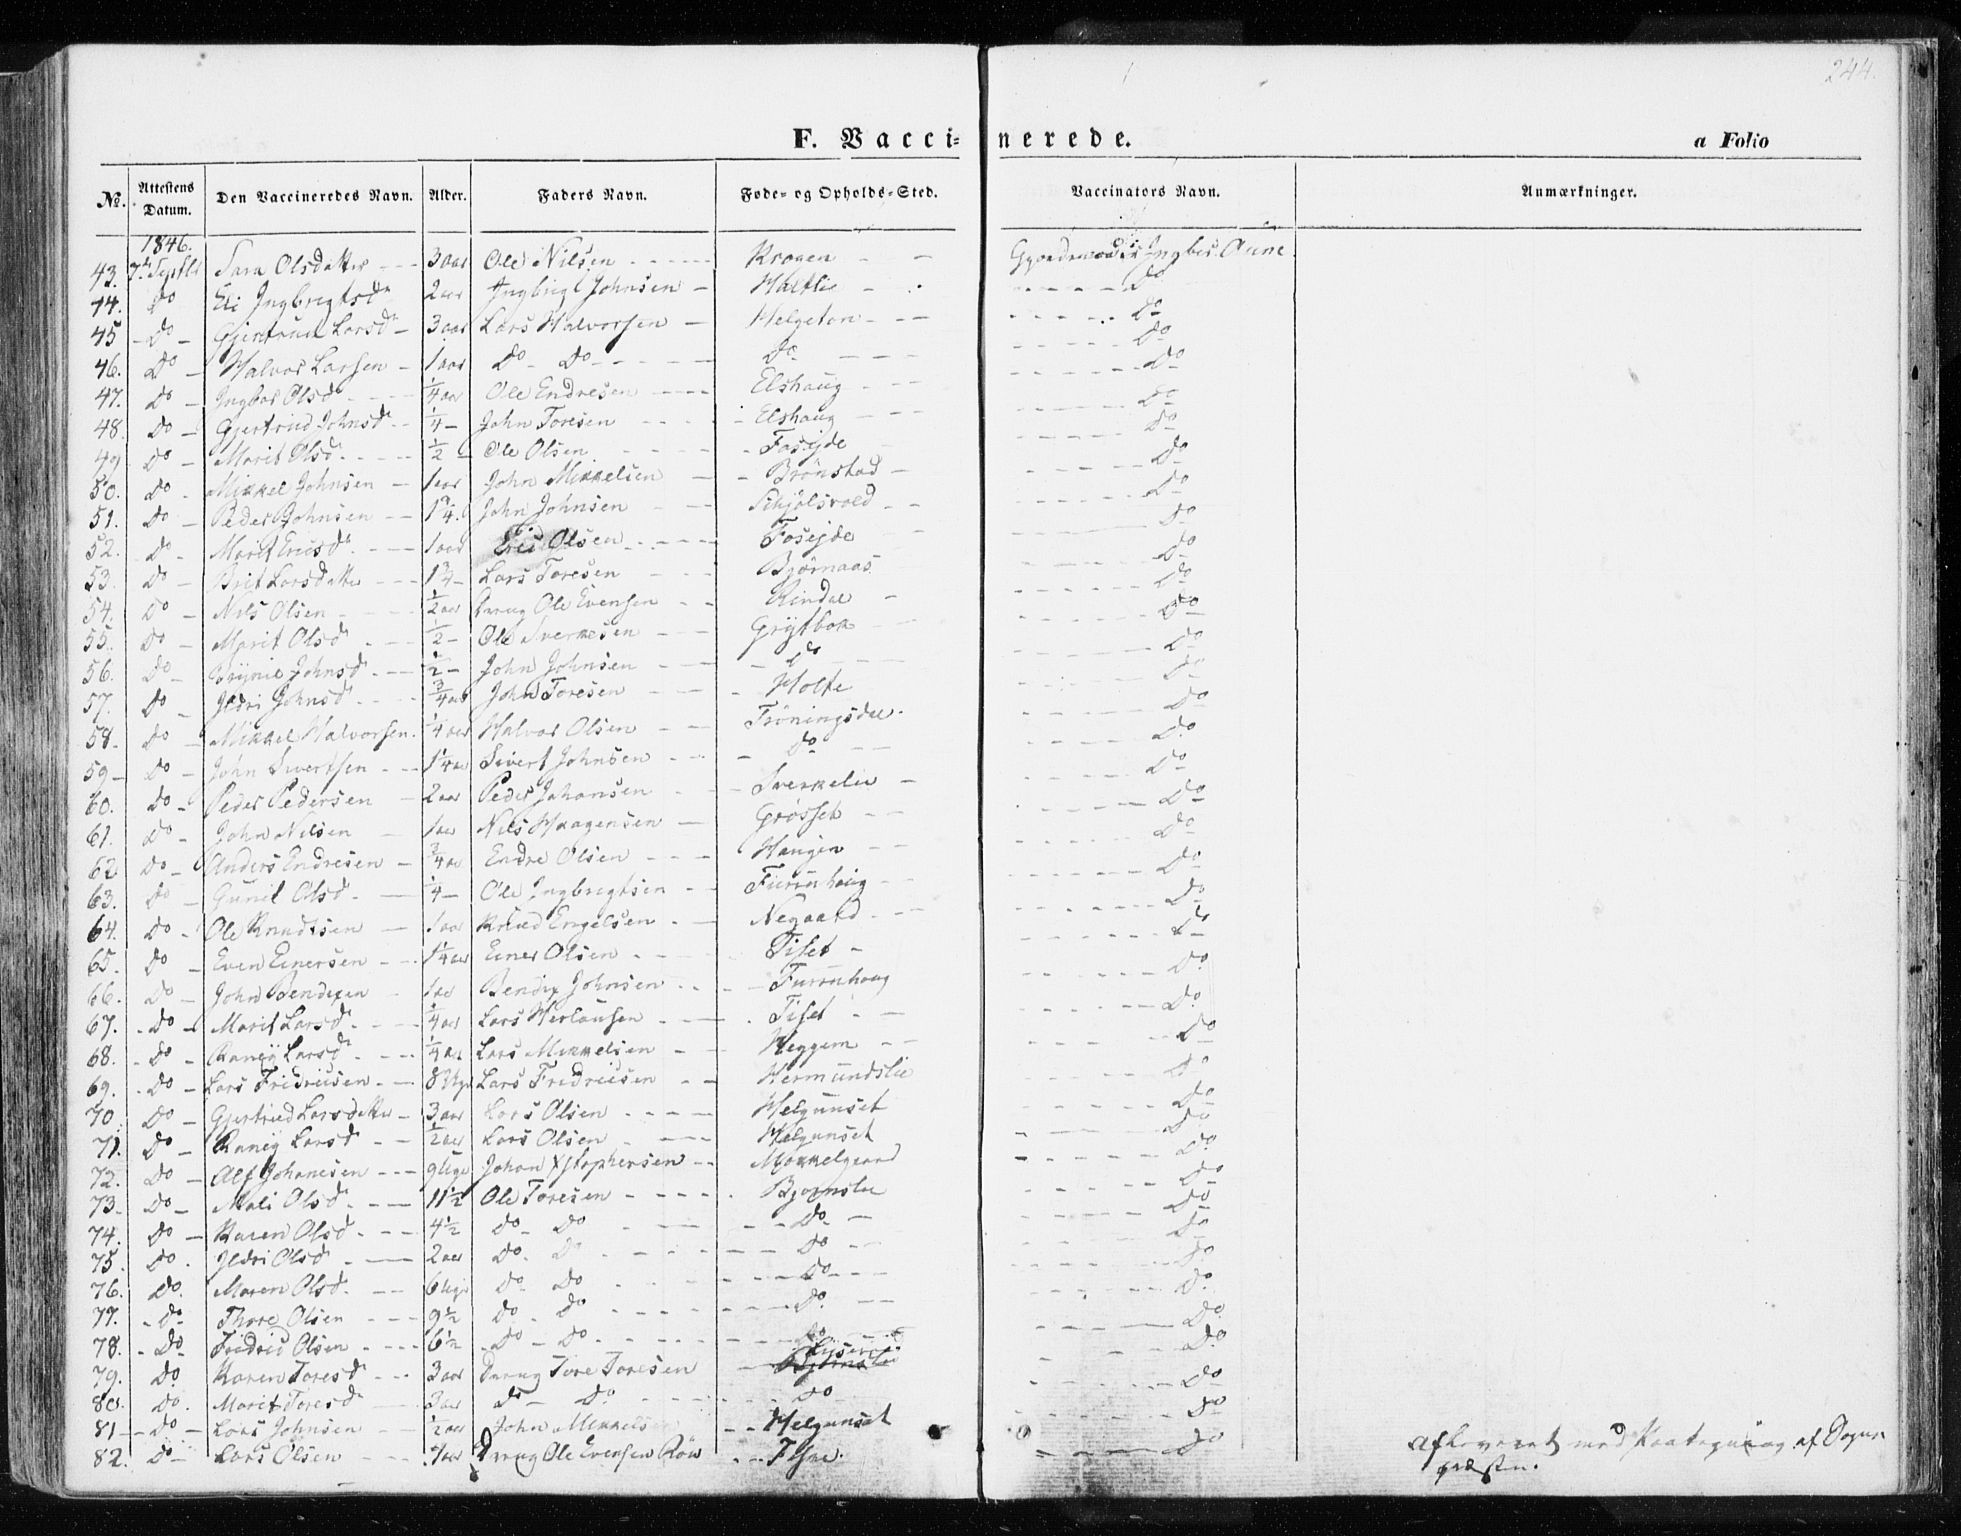 244.
F. Vaccinerede.
a Folio
No. Attestens Datum. Den Vaccineredes Navn. Alder. Faders Navn. Føde- og Opholds-Sted. Vaccinators Navn. Anmærkninger.
1846.
43. 7de Septbr Sara Olsdatter 3 aar Ole Nilsen Krogen Ingbr. Aune
44. Do Eli Ingbrigtsd 2 aar Ingbrigt Johnsen Haltlie Do
45 Do Gjertrud Larsd 3 aar Lars Halvorsen Helgeton Do
46. Do Halvor Larsen 1 aar Do Do Do Do
47. Do Ingbor Olsd 1/4 aar Ole Endresen Elshaug Do
48. Do Gjertrud Johnsd 1/4 John Toresen Elshaug Do
49 Do Marit Olsd 1/2 Ole Olsen Foseide Do
50. Do Mikkel Johnsen 1 aar John Mikkelsen Brønstad Do
51. Do Peder Johnsen 1 3/4 John Johnsen Do
52. Do Marit Ericsd 1 aar Eric Olsen Foseide Do
53. Do Brit Larsdatter 1 3/4 Lars Toresen Bjørnaas Do
54. Do Nils Olsen 1/2 aar Ole Evensen Rindal Do
55. Do Marit Olsd 1/2 Ole Sverkesen Grytbak Do
56. Do Johnsd 1/2 John Johnsen Do Do
57. Do Ildri Johnsd 3/4 aar John Toresen Holte Do
58. Do Mikkel Halvorsen 1/4 aar Halvor Olsen Trøningsdal Do
59 Do John Sivertsen 1 1/4 aar Sivert Johnsen Do Do
60. Do Peder Pedersen 2 aar Peder Johansen Sverkelie Do
61. Do John Nilsen 1 aar Nils Haagensen Grøsset Do
62 Do Anders Endresen 3/4 aar Endre Olsen Haugen Do
63. Do Gunil Olsd 1/4 Ole Ingbrigtsen Furruhaug Do
64. Do Ole Knudtsen 1 aar Knud Engelsen Negaard Do
65. Do Even Einersen 1 1/4 aar Einer Olsen Tiset Do
66. Do John Bendixen 1 aar Bendix Johnsen Furruhaug Do
67. Do Marit Larsd 1/4 aar Lars Herlausen Tiset Do
68. Do Raney Larsd 1/4 aar Lars Mikkelsen Heggem Do
69. Do Lars Fridricsen 8 Uger Lars Fredricsen Hermundslie Do
70 Do Gjertrud Larsdatter 3 aar Lars Olsen Helgunset Do
71. Do Raney Larsd 1/2 aar Lars Olsen Helgunset Do
72. Do Alf Johansen 9 Uger Johan Xstophersen Mokkelgaard Do
73 Do Mali Olsd 11 1/2 Ole Toresen Bjørnslie Do
74. Do Karen Olsd 4 1/2 Do Do Do Do
75. Do Ildri Olsd 2 aar Do Do Do Do
76. Do Maren Olsd 6 Uger Do Do Do Do
77. Do Thore Olsen 9 1/2 Do Do Do Do
78. Do Fredric Olsen 6 1/2 Do Do Do Do
79. Do Karen Toresd 3 aar Tore Toresen Bjørnslie Do
80. Do Marit Toresd 3 aar Do Do Do Do
81 Do Lars Johnsen 1/2 aar John Mikkelsen Helgunset Do
82. Do Lars Olsen Ole Evensen Røn Do
Afleveret med Paategning af Sogne-
præsten.